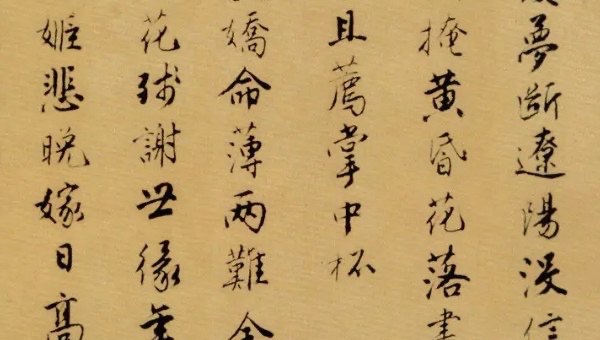 夢斷遼陽沒信
掩黃昏花落
且薦掌中杯
嬌命薄兩難全
花殘謝世緣
姬悲晚嫁日高